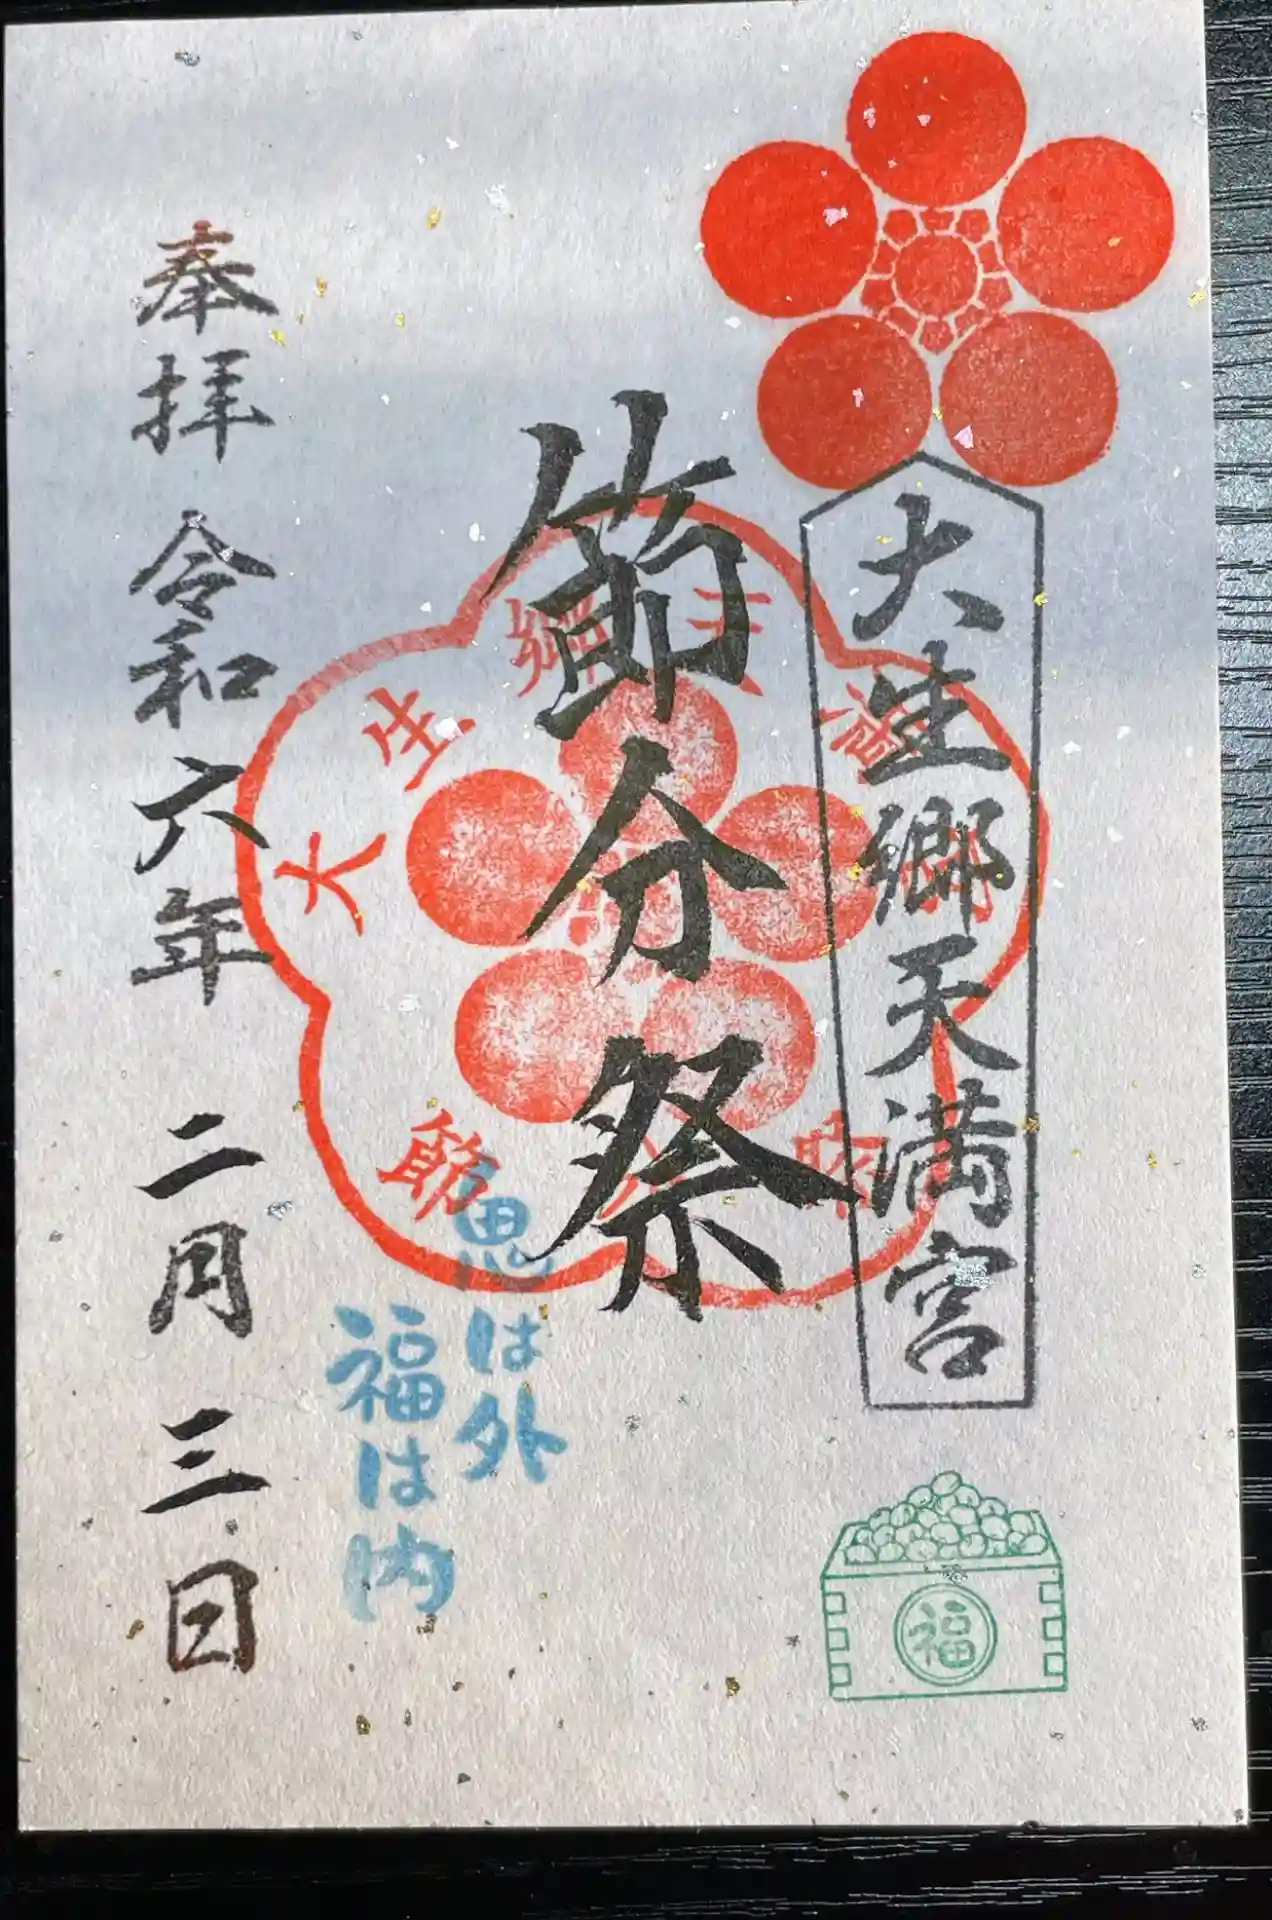 大生郷天満宮
節分祭
大生郷天満宮
節分祭
鬼は外
福は内
奉拝 令和六年 二月三日
福